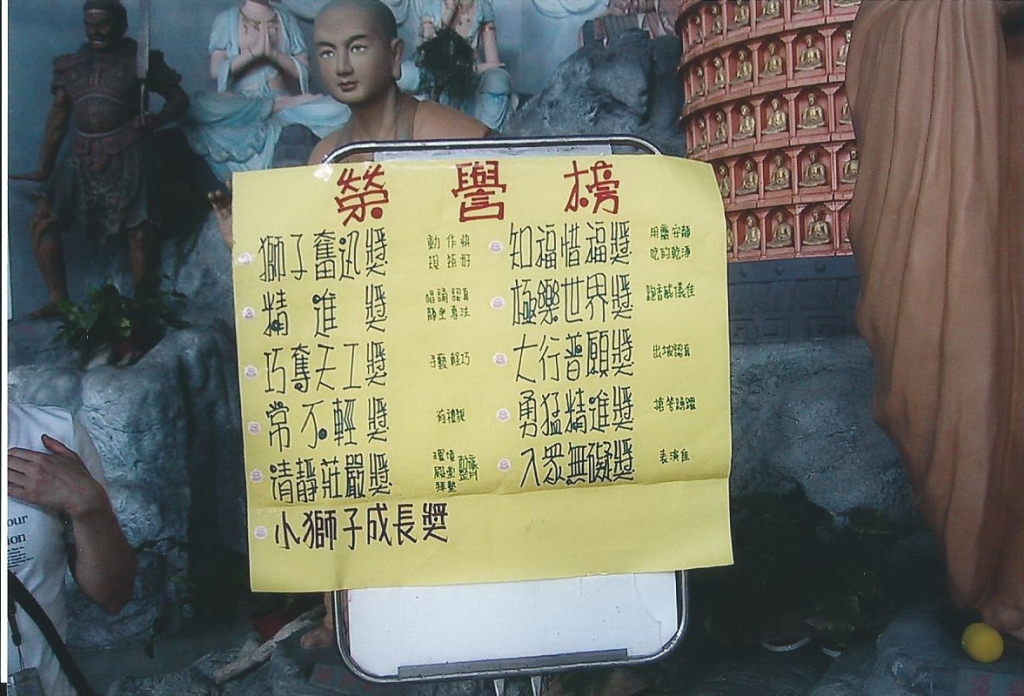 榮譽榜
獅子奮迅獎 動作快
規矩好
精進獎 唱誦認真
靜坐專注
巧奪天工獎 手藝輕巧
常不輕獎 有禮貌
清靜莊嚴獎 環境
殿堂
拜墊 整齊
小獅子成長獎
知福惜福獎 用齋安靜
吃的乾淨
極樂世界獎 跑香威儀佳
大行普願獎 出坡認真
勇猛精進獎 搶答踴躍
入眾無礙獎 表演佳
our
ion